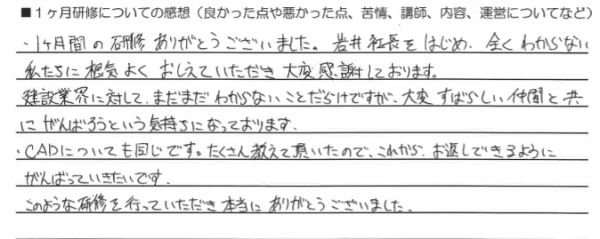 ■１ヶ月研修についての感想（良かった点や悪かった点、苦情、講師、内容、運営についてなど）
・１ヶ月間の研修ありがとうございました。岩井社長をはじめ、全くわからない
私たちに根気よくおしえていただき大変感謝しております。
建設業界に対して、まだまだわからないことだらけですが、大変すばらしい仲間と共
にがんばろうという気持ちになっております。
・CADについても同じです。たくさん教えて頂いたので、これから、お返しできるように
がんばっていきたいです。
このような研修を行っていただき本当にありがとうございました。